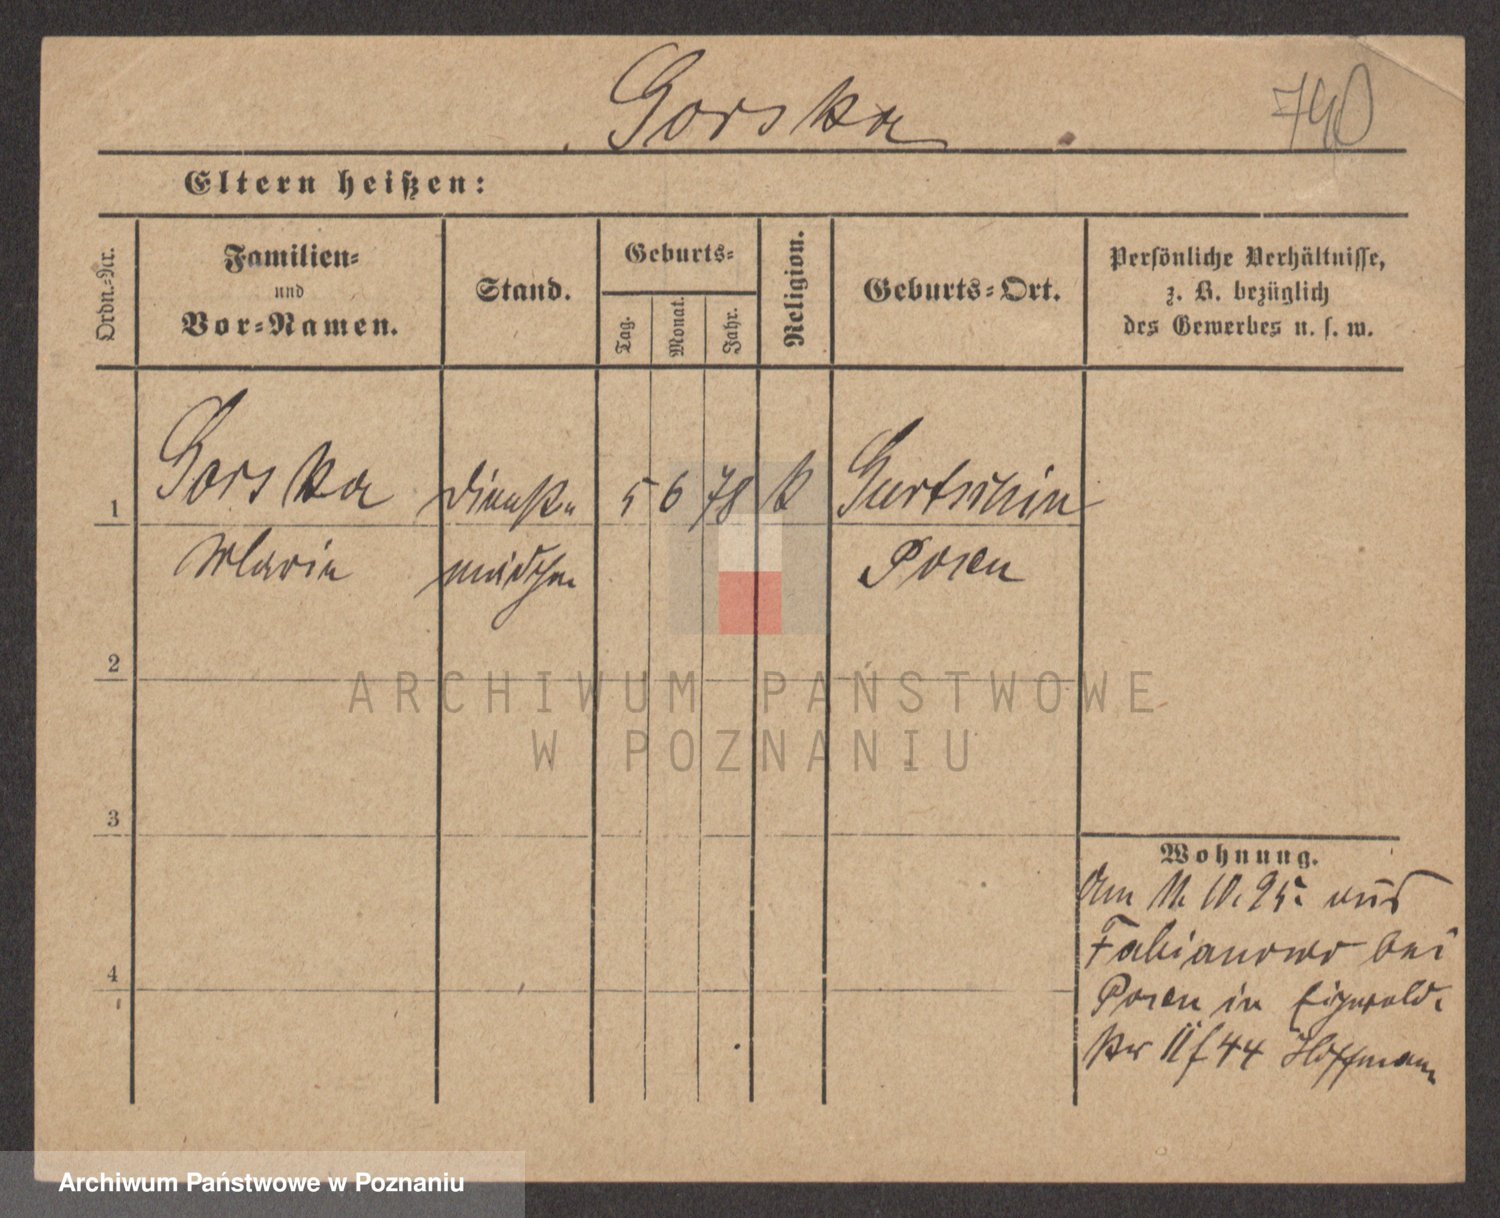 Gorska
790
Eltern heißen:
Ordn.-Nr.
Familien-
und
Vor-Namen.
Stand.
Geburts-
Tag.
Monat.
Jahr.
Religion.
Geburts-Ort.
Persönliche Verhältnisse,
z. B. bezüglich
des Gewerbes u. s. w.
1
Gorska
Dienst-
5
6
78
k
Gurtschin
Marie
mädchen
Posen
2
ARCHIWUM PAŃSTWOWE
W POZNANIU
3
Wohnung.
Am 11. 10. 95. aus
Fabianowo bei
4
Posen in
44 Hoffmann
Archiwum Państwowe w Poznaniu